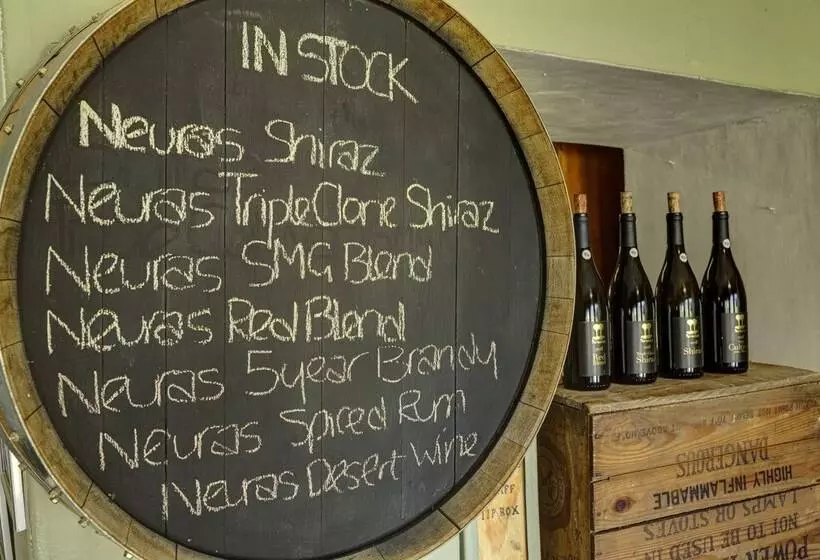 IN STOCK
Neuras Shiraz
Neuras Triple Clone Shiraz
Neuras SMG Blend
Neuras Red Blend
Neuras 5 year Brandy
Neuras Spiced Rum
Neuras Desert Wine
Red
Shiraz
Shiraz
DANGEROUS
HIGHLY INFLAMMABLE
LAMPS OR STOVES
NOT TO BE USED
POWER
ZIP BOX